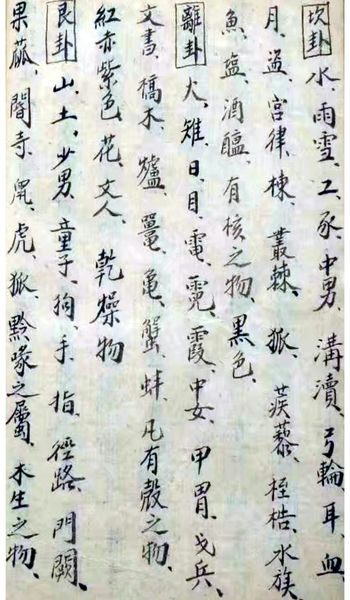 坎卦 水、雨雪、工、豕、中男、溝瀆、弓輪、耳、血、
月、盜、宮律、棟、叢棘、狐、蒺藜、桎梏、水族、
魚、鹽、酒醞、有核之物、黑色、
離卦 火、雉、日、目、電、霓、霞、中女、甲冑、戈兵、
文書、槁木、爐、鼉、龜、蟹、蚌、凡有殼之物、
紅赤紫色、花、文人、乾燥物
艮卦 山、土、少男、童子、狗、手、指、徑路、門闕、
果蓏、閽寺、鼠、虎、狐、黔喙之屬、木生之物、